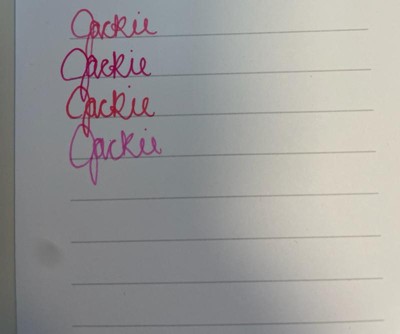 Jackie
Jackie
Jackie
Jackie